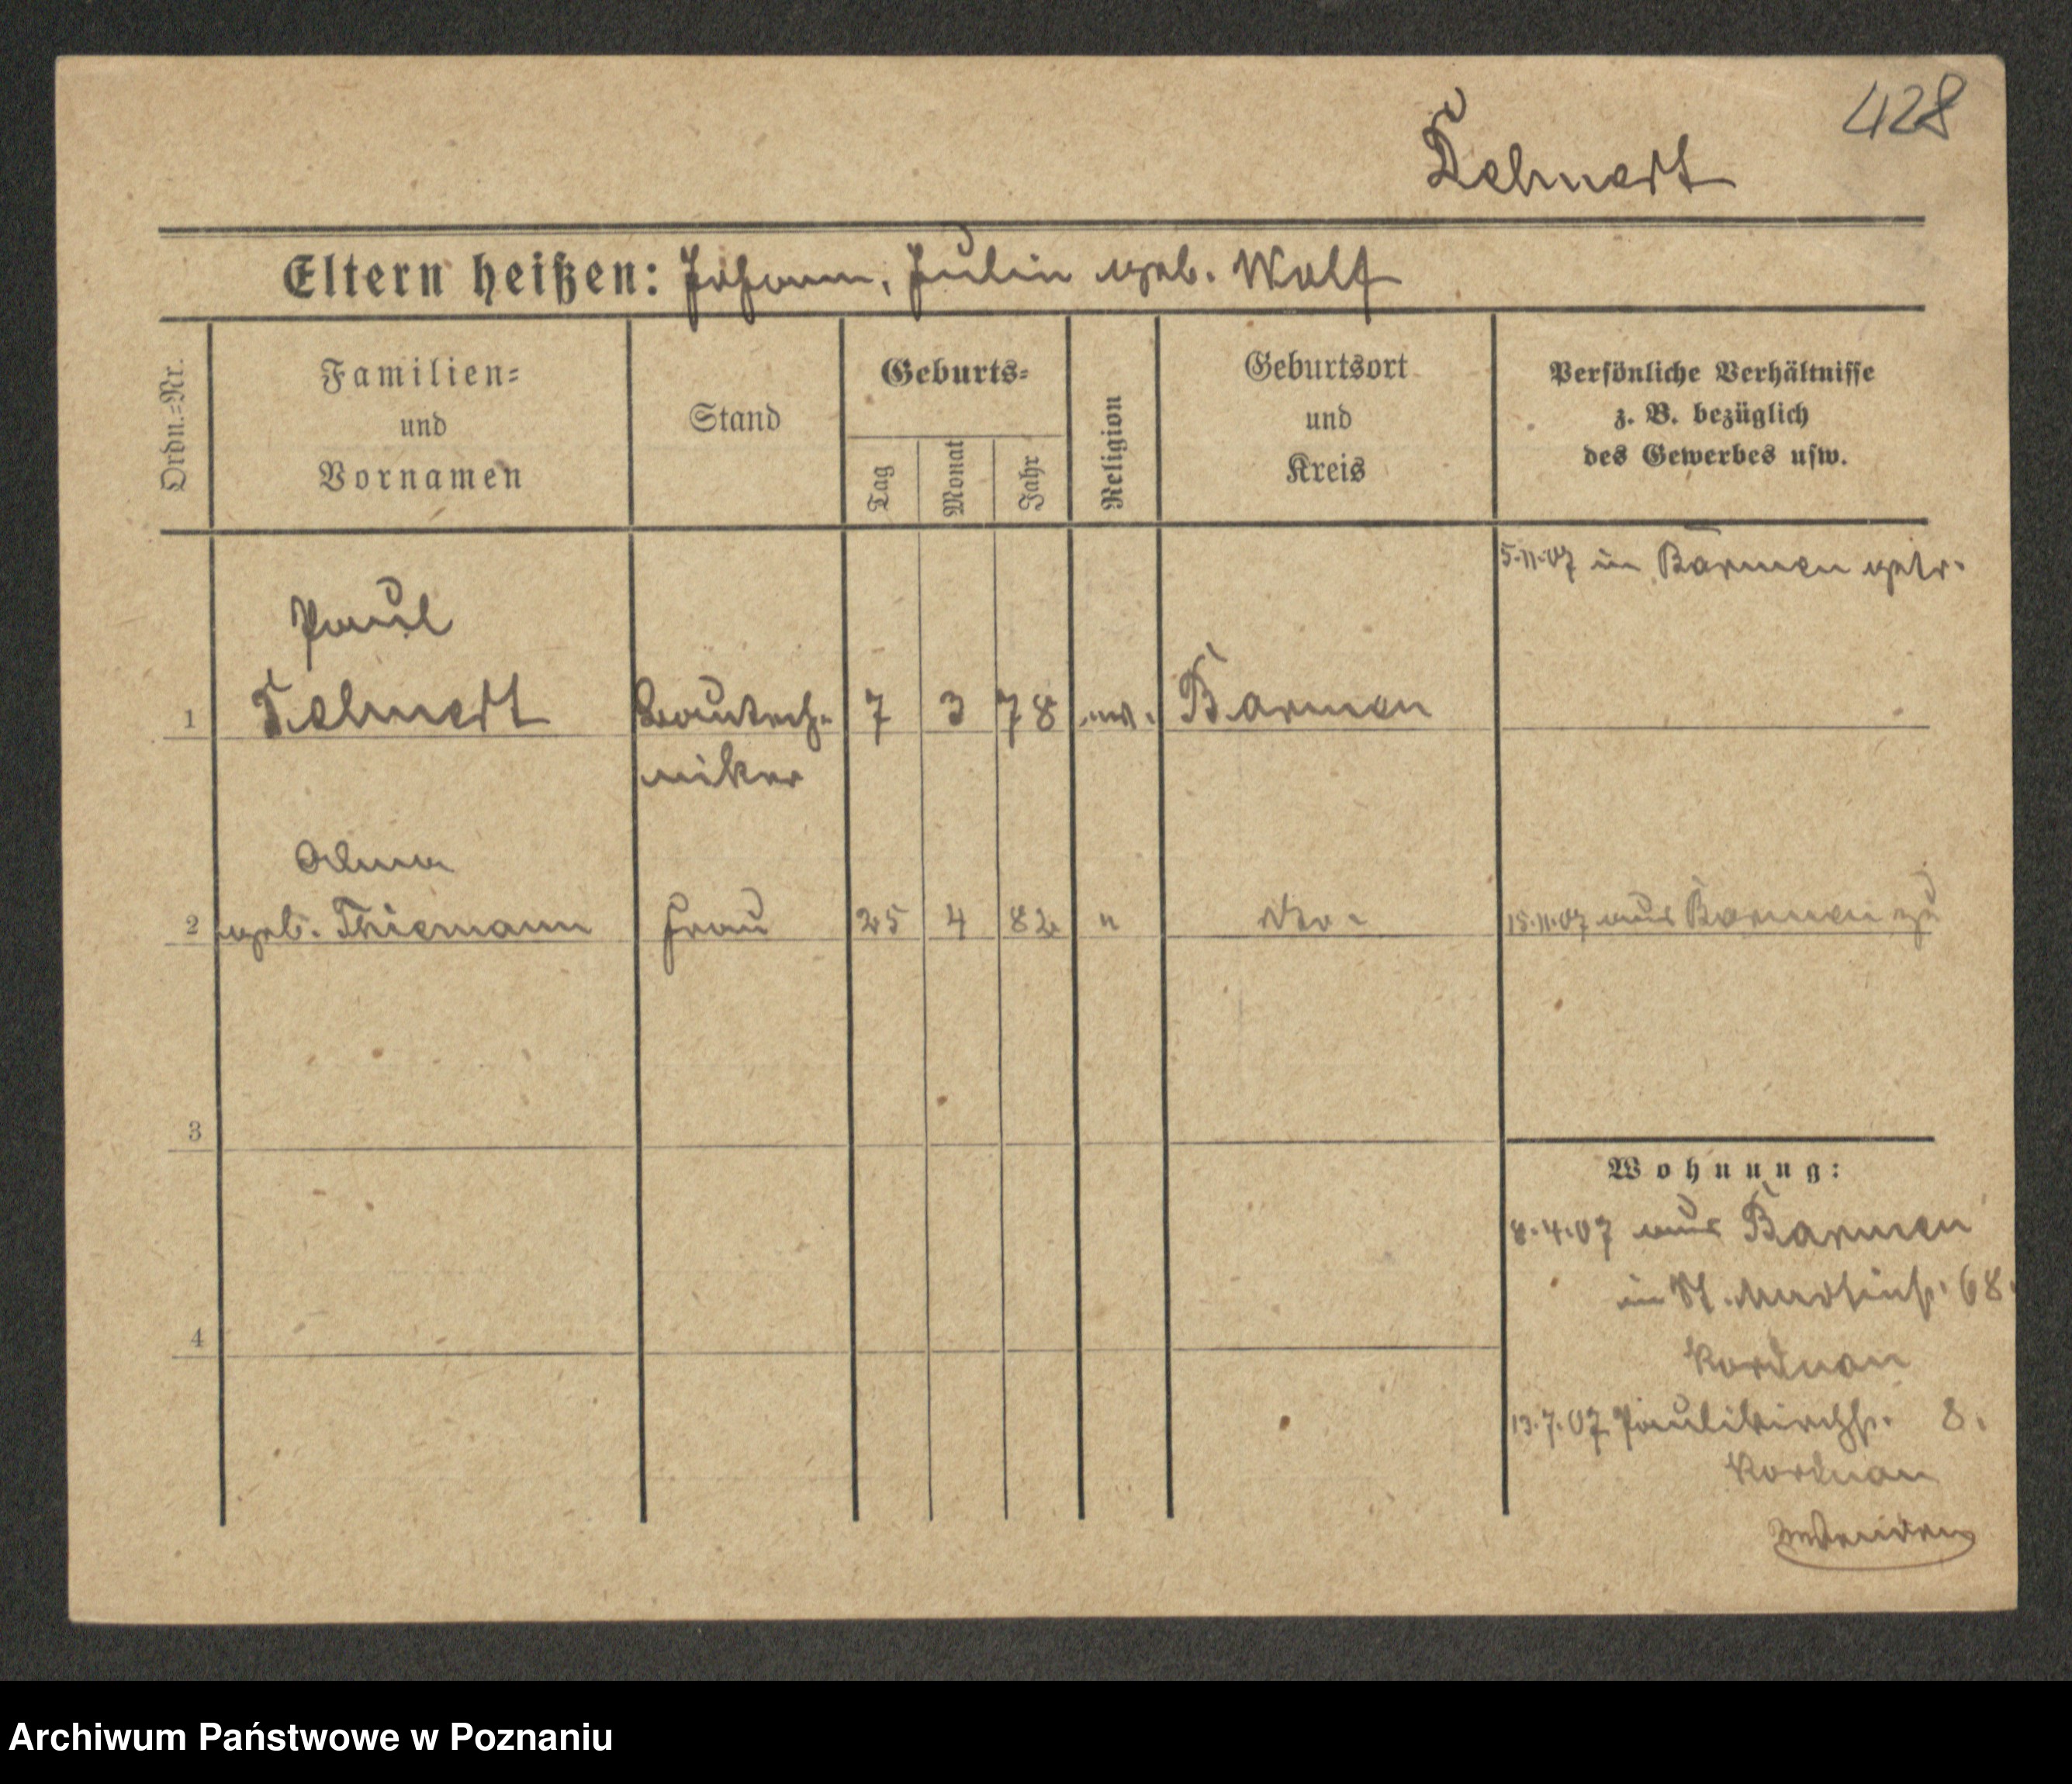 428
Eltern heißen: Johann, Julia geb. Wolf
Ordn.=Nr.
Familien=
und
Vornamen
Stand
Geburts=
Tag
Monat
Jahr
Religion
Geburtsort
und
Kreis
Persönliche Verhältnisse
z. B. bezüglich
des Gewerbes usw.
5.11.07 in Barmen getr.
Paul
1 Bautech- 7 3 78 Barmen
niker
Alma
2 geb. Thiemann Frau 25 4 82 " dto. 15.11.07 aus Barmen zu
3
4
Wohnung:
8.4.07 aus Barmen
in St. Martinstr. 68.
Korduan
13.7.07 Paulikirchstr. 8.
Korduan
wenden
Archiwum Państwowe w Poznaniu